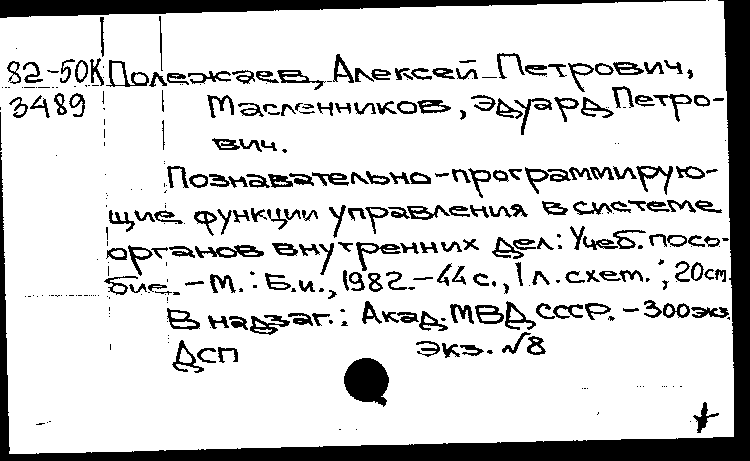 82-50К Полежаев, Алексей Петрович,
3489 Масленников, Эдуард Петро-
вич.
Познавательно-программирую-
щие функции управления в системе
органов внутренних дел: Учеб. посо-
бие. - М.: Б.и., 1982. - 44 с., 1 л. схем.; 20 см.
В надзаг.: Акад. МВД СССР. - 300 экз.
ДСП Экз. №8